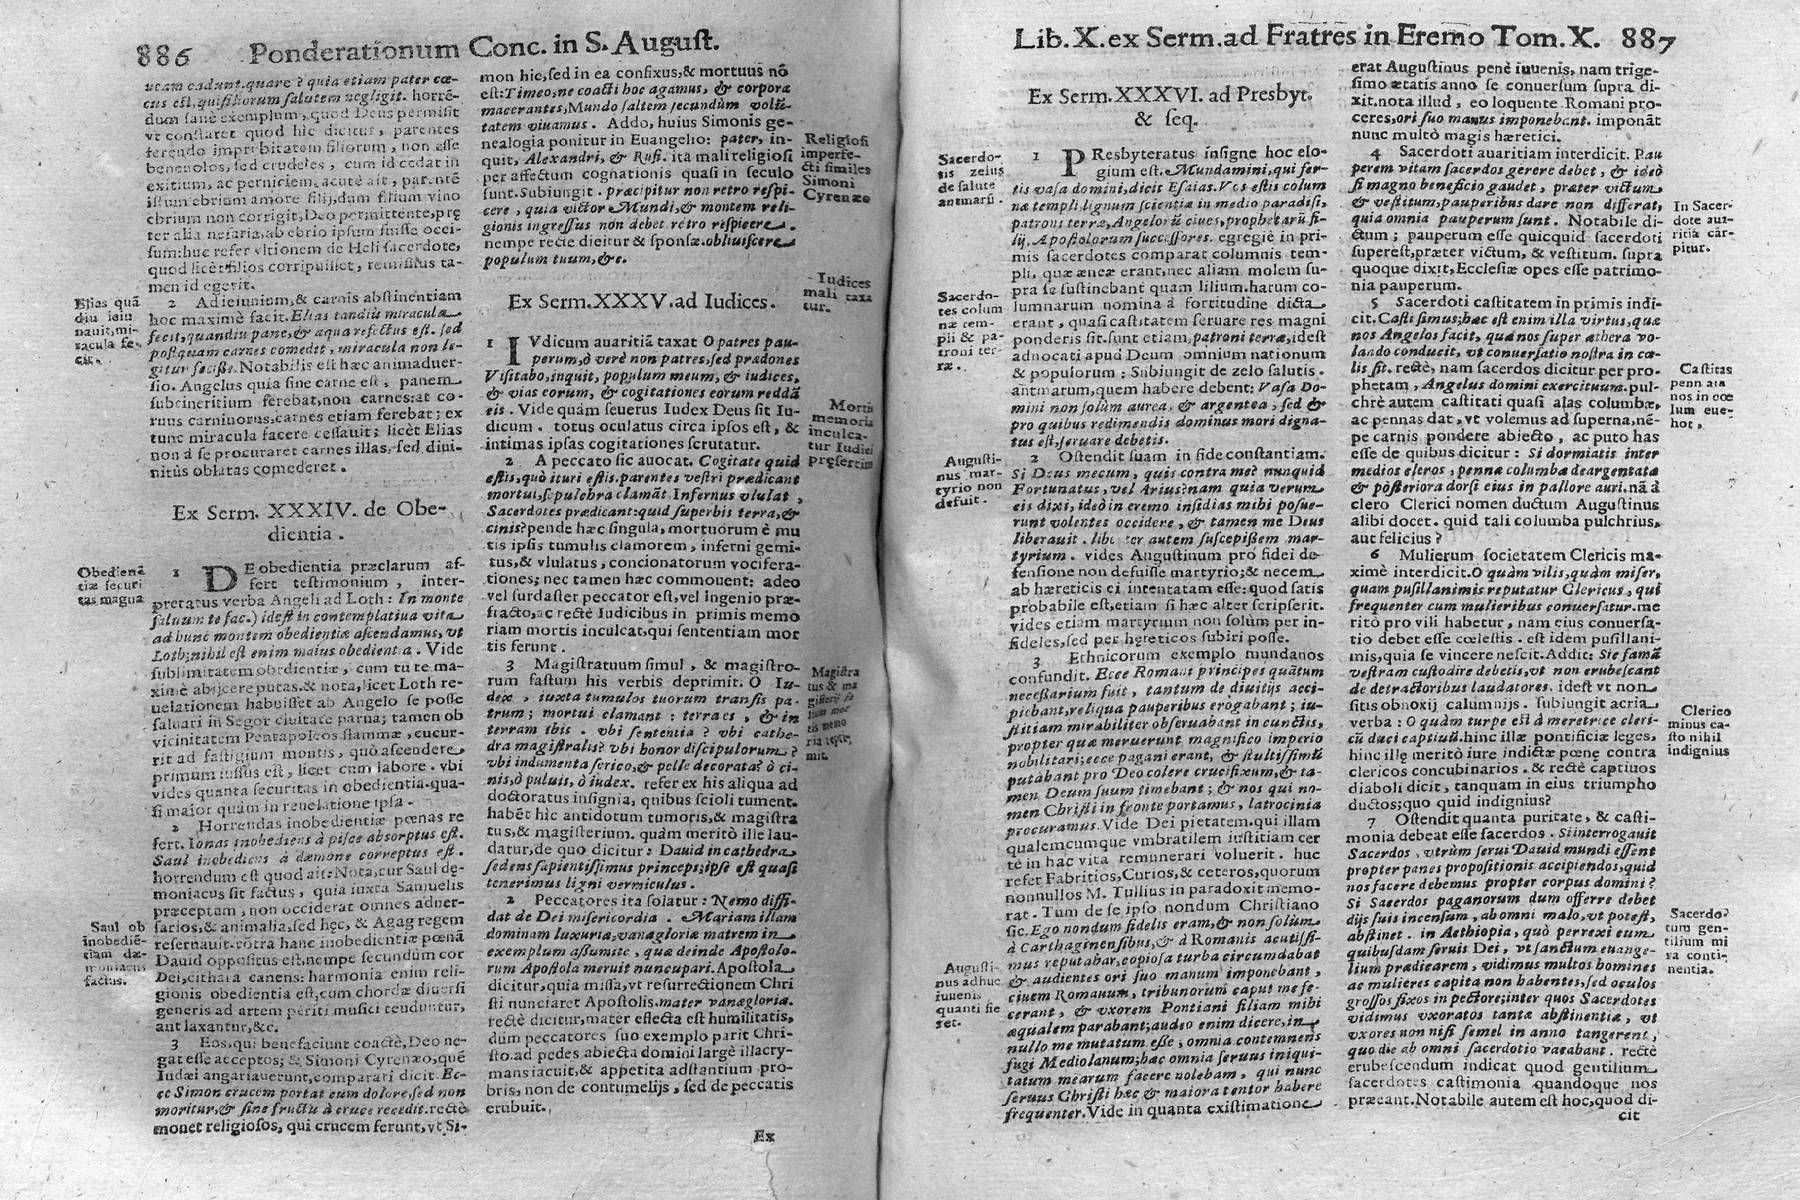 886 Ponderationum Conc. in S. Auguſt.
ucam cadunt. quare? quia etiam pater cæ-
cus eſt, qui filiorum ſalutem negligit. horrẽ-
dum ſanè exemplum, quod Deus permiſit
vt conſtaret quod hic dicitur, parentes
ferendo improbitatem filiorum, non eſſe
benevolos, ſed crudeles, cum id cedat in
exitium, ac perniciem. acutè ait, parentẽ
iſtum ebrium amore filij, dum filium vino
ebrium non corrigit, Deo permittente, prę
ter alia nefaria, ab ebrio ipſum fuiſſe occi-
ſum: huc refer vltionem de Heli ſacerdote,
quod licèt filios corripuiſſet, remiſſius ta-
men id egerit.
Elias quã
diu ieiu
nauit, mi-
racula fe-
cit.
2 Ad ieiunium, & carnis abſtinentiam
hoc maximè facit. Elias tandiu miracula
fecit, quandiu pane, & aqua refectus eſt. ſed
poſtquam carnes comedit, miracula non le-
gitur feciſſe. Notabilis eſt hæc animaduer-
ſio. Angelus quia ſine carne eſt, panem
ſubcineritium ferebat, non carnes: at co-
ruus carniuorus, carnes etiam ferebat; ex
tunc miracula facere ceſſauit; licèt Elias
non à ſe procuraret carnes illas, ſed diui-
nitùs oblatas comederet.
Ex Serm. XXXIV. de Obe-
dientia.
Obedienã
tiæ ſecuri
tas magna
1 DE obedientia præclarum af-
fert teſtimonium, inter-
pretatus verba Angeli ad Loth: In monte
ſaluum te fac.) ideſt in contemplatiua vita
ad hunc montem obedientiæ aſcendamus, vt
Loth; nihil eſt enim maius obedientia. Vide
ſublimitatem obedientiæ, cum tu te ma-
ximè abijcere putas. & nota, licet Loth re-
uelationem habuiſſet ab Angelo ſe poſſe
ſaluari in Segor ciuitate parua; tamen ob
vicinitatem Pentapoleos flammæ, cucur-
rit ad faſtigium montis, quò aſcendere
primum iuſſus eſt, licet cum labore. vbi
vides quanta ſecuritas in obedientia. qua-
ſi maior quàm in reuelatione ipſa.
2 Horrendas inobedientiæ pœnas re
fert. Ionas inobediens à piſce abſorptus eſt.
Saul inobediens à dæmone correptus eſt.
horrendum eſt quod ait: Nota, cur Saul dę-
moniacus ſit factus, quia iuxta Samuelis
præceptum, non occiderat omnes aduer-
ſarios, & animalia, ſed hęc, & Agag regem
reſeruauit. cõtra hanc inobedientiæ pœnã
Dauid oppoſitus eſt, nempe ſecundùm cor
Dei, cithara canens: harmonia enim reli-
gionis obedientia eſt, cum chordæ diuerſi
generis ad artem periti muſici tenduntur,
aut laxantur, &c.
Saul ob
inobediẽ-
tiam dæ-
moniacus
factus.
3 Eos, qui benefaciunt coactè, Deo ne-
gat eſſe acceptos; & Simoni Cyrenæo, quẽ
Iudæi angariauerunt, comparari dicit. Ec-
ce Simon crucem portat cum dolore, ſed non
moritur, & ſine fructu à cruce recedit. rectè
monet religioſos, qui crucem ferunt, vt Si-
mon hic, ſed in ea confixus, & mortuus nõ
eſt: Timeo, ne coacti hoc agamus, & corpora
macerantes, Mundo ſaltem ſecundùm volũ-
tatem viuamus. Addo, huius Simonis ge-
nealogia ponitur in Euangelio: pater, in-
quit, Alexandri, & Rufi. ita mali religioſi
per affectum cognationis quaſi in ſeculo
ſunt. Subiungit. præcipitur non retro reſpi-
cere, quia victor Mundi, & montem reli-
gionis ingreſſus non debet retro reſpicere.
nempe rectè dicitur & ſponſæ. obliuiſcere
populum tuum, &c.
Religioſi
imperfe-
cti ſimiles
Simoni
Cyrenæo
Ex Serm. XXXV. ad Iudices.
Iudices
mali taxa
tur.
1 IVdicum auaritiã taxat O patres pau-
perum, ò verè non patres, ſed prædones
Viſitabo, inquit, populum meum, & iudices,
& vias eorum, & cogitationes eorum reddã
eis. Vide quàm ſeuerus Iudex Deus ſit Iu-
dicum. totus oculatus circa ipſos eſt, &
intimas ipſas cogitationes ſcrutatur.
Mortis
memoria
inculca-
tur Iudici
pręſertim
2 A peccato ſic auocat. Cogitate quid
eſtis, quò ituri eſtis. parentes veſtri prædicant
mortui, ſepulchra clamãt Infernus vlulat,
Sacerdotes prædicant: quid ſuperbis terra, &
cinis? pende hæc ſingula, mortuorum è mu
tis ipſis tumulis clamorem, inferni gemi-
tus, & vlulatus, concionatorum vocifera-
tiones; nec tamen hæc commouent: adeo
vel ſurdaſter peccator eſt, vel ingenio præ-
fracto, ac rectè Iudicibus in primis memo
riam mortis inculcat, qui ſententiam mor
tis ferunt.
3 Magiſtratuum ſimul, & magiſtro-
rum faſtum his verbis deprimit. O Iu-
dex, iuxta tumulos tuorum tranſis pa-
trum; mortui clamant: terra es, & in
terram ibis. vbi ſententia? vbi cathe-
dra magiſtralis? vbi honor diſcipulorum?
vbi indumenta ſerico, & pelle decorata? ò ci-
nis, ò puluis, ò iudex. refer ex his aliqua ad
doctoratus inſignia, quibus ſcioli tument.
habẽt hîc antidotum tumoris, & magiſtra
tus, & magiſterium. quàm meritò ille lau-
datur, de quo dicitur: Dauid in cathedra
ſedens ſapientiſſimus princeps; ipſe eſt quaſi
tenerimus ligni vermiculus.
Magiſtra
tus & ma
giſterij fa
ſtum mor
tis memo
ria repri-
mit.
2 Peccatores ita ſolatur: Nemo diffi-
dat de Dei miſericordia. Mariam illam
dominam luxuriæ, vanægloriæ matrem in
exemplum aſſumite, quæ deinde Apoſtolo-
rum Apoſtola meruit nuncupari. Apoſtola
dicitur, quia miſſa, vt reſurrectionem Chri
ſti nunciaret Apoſtolis. mater vanægloria.
rectè dicitur, mater effecta eſt humilitatis,
dum peccatores ſuo exemplo parit Chri-
ſto. ad pedes abiecta domini largè illacry-
mans iacuit, & appetita adſtantium pro-
bris, non de contumelijs, ſed de peccatis
erubuit.
Ex
Lib. X. ex Serm. ad Fratres in Eremo Tom. X. 887
Ex Serm. XXXVI. ad Presbyt.
& ſeq.
Sacerdo-
tis zelus
de ſalute
animarũ.
1 PResbyteratus inſigne hoc elo-
gium eſt. Mundamini, qui fer-
tis vaſa domini, dicit Eſaias. Vos eſtis colum
næ templi, lignum ſcientiæ in medio paradiſi,
patroni terræ, Angelorũ ciues, prophetarũ fi-
lij, Apoſtolorum ſucceſſores. egregiè in pri-
mis ſacerdotes comparat columnis tem-
pli, quæ æneæ erant, nec aliam molem ſu-
pra ſe ſuſtinebant quam lilium. harum co-
lumnarum nomina à fortitudine dicta
erant, quaſi caſtitatem ſeruare res magni
ponderis ſit. ſunt etiam, patroni terræ, ideſt
aduocati apud Deum omnium nationum
& populorum; Subiungit de zelo ſalutis
animarum, quem habere debent: Vaſa Do-
mini non ſolùm aurea, & argentea, ſed &
pro quibus redimendis dominus mori digna-
tus eſt, ſeruare debetis.
Sacerdo-
tes colum
næ tem-
pli & pa-
troni ter-
ræ.
Auguſti-
nus mar-
tyrio non
defuit.
2 Oſtendit ſuam in fide conſtantiam.
Si Deus mecum, quis contra me? nunquid
Fortunatus, vel Arius? nam quia verum
eis dixi, ideò in eremo inſidias mihi poſue-
runt volentes occidere, & tamen me Deus
liberauit. autem ſuſcepiſſem mar-
tyrium. vides Auguſtinum pro fidei de-
fenſione non defuiſſe martyrio; & necem
ab hæreticis ei intentatam eſſe: quod ſatis
probabile eſt, etiam ſi hæc alter ſcripſerit.
vides etiam martyrium non ſolùm per in-
fideles, ſed per hęreticos ſubiri poſſe.
3 Ethnicorum exemplo mundanos
confundit. Ecce Romani principes quãtum
neceſſarium fuit, tantum de diuitijs acci-
piebant, reliqua pauperibus erogabant; iu-
ſtitiam mirabiliter obſeruabant in cunctis,
propter quæ meruerunt magnifico imperio
nobilitari; ecce pagani erant, & ſtultiſſimũ
putabant pro Deo colere crucifixum, & ta-
men Deum ſuum timebant; & nos qui no-
men Chriſti in fronte portamus, latrocinia
procuramus. Vide Dei pietatem. qui illam
qualemcumque vmbratilem iuſtitiam cer
tè in hac vita remunerari voluerit. huc
refer Fabritios, Curios, & ceteros, quorum
nonnullos M. Tullius in paradoxit memo-
rat. Tum de ſe ipſo nondum Chriſtiano
ſic. Ego nondum fidelis eram, & non ſolùm
à Carthaginenſibus, & à Romanis acutiſſi-
mus reputabar, copioſa turba circumdabat
& audientes ori ſuo manum imponebant,
ciuem Romanum, tribunorum caput me fe-
cerant, & vxorem Pontiani filiam mihi
æqualem parabant; audio enim dicere, in
nullo me mutatum eſſe, omnia contemnens
fugi Mediolanum; hæc omnia ſeruus iniqui-
tatum mearum facere nolebam, qui nunc
ſeruus Chriſti hæc & maiora tentor habere
frequenter. Vide in quanta exiſtimatione
Auguſti-
nus adhuc
iuuenis
quanti fie
ret.
erat Auguſtinus penè iuuenis, nam trige-
ſimo ætatis anno ſe conuerſum ſupra di-
xit. nota illud, eo loquente Romani pro-
ceres, ori ſuo manus imponebant. imponãt
nunc multò magis hæretici.
4 Sacerdoti auaritiam interdicit. Pau
perem vitam ſacerdos gerere debet, & ideò
ſi magno beneficio gaudet, præter victum
& veſtitum, pauperibus dare non differat,
quia omnia pauperum ſunt. Notabile di-
ctum; pauperum eſſe quicquid ſacerdoti
ſupereſt, præter victum, & veſtitum. ſupra
quoque dixit, Eccleſiæ opes eſſe patrimo-
nia pauperum.
In Sacer-
dote aua-
ritiã car-
pitur.
5 Sacerdoti caſtitatem in primis indi-
cit. Caſtiſſimus; hæc eſt enim illa virtus, quæ
nos Angelos facit, quæ nos ſuper æthera vo-
lando conducit, vt conuerſatio noſtra in cæ-
lis ſit. rectè, nam ſacerdos dicitur per pro-
phetam, Angelus domini exercituum. pul-
chrè autem caſtitati quaſi alas columbæ,
ac pennas dat, vt volemus ad ſuperna, nẽ-
pe carnis pondere abiecto, ac puto has
eſſe de quibus dicitur: Si dormiatis inter
medios cleros, pennæ columbæ deargentatæ
& poſteriora dorſi eius in pallore auri. nã à
clero Clerici nomen ductum Auguſtinus
alibi docet. quid tali columba pulchrius,
aut felicius?
Caſtitas
penn ata
nos in cœ
lum eue-
hot,
6 Mulierum ſocietatem Clericis ma-
ximè interdicit. O quàm vilis, quàm miſer,
quam puſillanimis reputatur Clericus, qui
frequenter cum mulieribus conuerſatur. me
ritò pro vili habetur, nam eius conuerſa-
tio debet eſſe cœleſtis. eſt idem puſillani-
mis, quia ſe vincere neſcit. Addit: Sic famã
veſtram cuſtodire debetis, vt non erubeſcant
de detractoribus laudatores. ideſt vt non
ſitis obnoxij calumnijs. ſubiungit acria
verba: O quàm turpe eſt à meretrice cleri-
cũ duci captiuũ. hinc illæ pontificiæ leges,
hinc illę meritò iure indictæ pœnę contra
clericos concubinarios. & rectè captiuos
diaboli dicit, tanquam in eius triumpho
ductos; quo quid indignius?
Clerico
minus ca-
ſto nihil
indignius
7 Oſtendit quanta puritate, & caſti-
monia debeat eſſe ſacerdos. Si interrogauit
Sacerdos, vtrùm ſerui Dauid mundi eſſent
propter panes propoſitionis accipiendos, quid
nos facere debemus propter corpus domini?
Si Sacerdos paganorum dum offerre debet
dijs ſuis incenſum, ab omni malo, vt poteſt,
abſtinet. in Aethiopia, quò perrexi cum
quibuſdam ſeruis Dei, vt ſanctum euange-
lium prædicarem, vidimus multos homines
ac mulieres capita non habentes, ſed oculos
groſſos fixos in pectore; inter quos Sacerdotes
vidimus vxoratos tantæ abſtinentiæ, vt
vxores non niſi ſemel in anno tangerent,
quo die ab omni ſacerdotio vacabant. rectè
erubeſcendum indicat quod gentilium
ſacerdotes caſtimonia quandoque nos
præeant. Notabile autem eſt hoc, quod di-
Sacerdo-
tum gen-
tilium mi
ra conti-
nentia.
cit